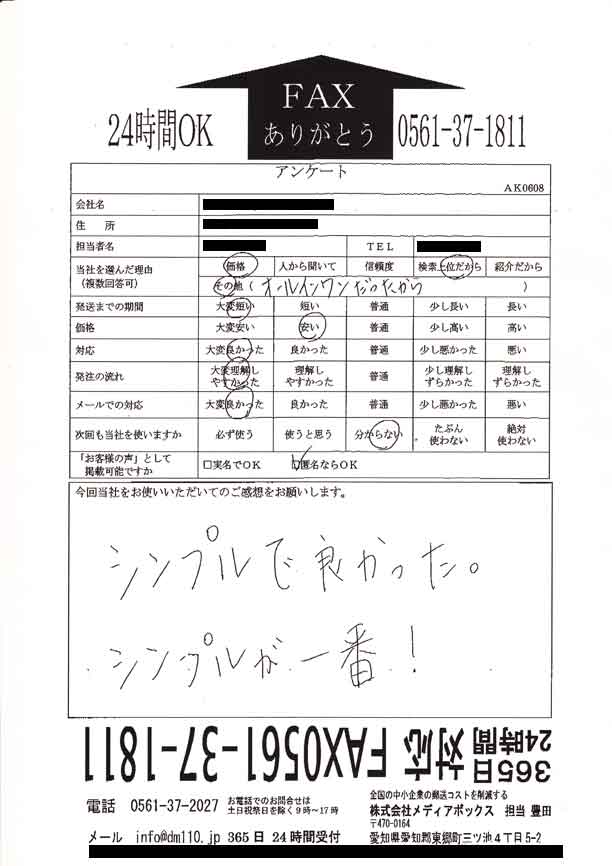 FAX
ありがとう
24時間OK
0561-37-1811
アンケート
AK0608
会社名
住 所
担当者名 TEL
当社を選んだ理由 価格 人から聞いて 信頼度 検索上位だから 紹介だから
(複数回答可) その他(オールインワンだったから )
発送までの期間 大変短い 短い 普通 少し長い 長い
価格 大変安い 安い 普通 少し高い 高い
対応 大変良かった 良かった 普通 少し悪かった 悪い
発注の流れ 大変理解しやすかった 理解しやすかった 普通 少し理解しずらかった 理解しずらかった
メールでの対応 大変良かった 良かった 普通 少し悪かった 悪い
次回も当社を使いますか 必ず使う 使うと思う 分からない たぶん使わない 絶対使わない
「お客様の声」として
掲載可能ですか □実名でOK □匿名ならOK
今回当社をお使いいただいてのご感想をお願いします。
シンプルで良かった。
シンプルが一番!
365日24時間対応 FAX0561-37-1811
電話 0561-37-2027 お電話でのお問合せは
土日祝祭日を除く9時~17時
メール info@dm110.jp 365日24時間受付
全国の中小企業の郵送コストを削減する
株式会社メディアボックス 担当 豊田
〒470-0164
愛知県愛知郡東郷町三ツ池4丁目5-2